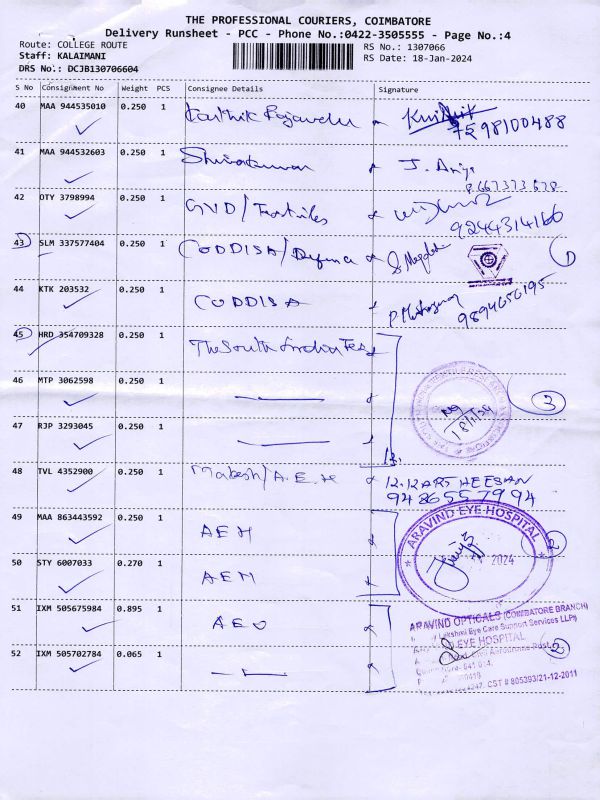 THE PROFESSIONAL COURIERS, COIMBATORE
Delivery Runsheet - PCC - Phone No.:0422-3505555 - Page No.:4
Route: COLLEGE ROUTE
RS No.: 1307066
Staff: KALAIMANI
RS Date: 18-Jan-2024
DRS No.: DCJB130706604
S No Consignment No Weight PCS Consignee Details Signature
40 MAA 944535010 0.250 1 Karthik
7598100488
41 MAA 944532603 0.250 1 Shivakumar J.
42 OTY 3798994 0.250 1 GVD/Textiles
9244314160
43 SLM 337577404 0.250 1 CODDISA/ S. 1
44 KTK 203532 0.250 1 CODDISA P
9894656195
45 HRD 354709328 0.250 1 The South India Tex
46 MTP 3062598 0.250 1 3
18/1/24
47 RJP 3293045 0.250 1
48 TVL 4352900 0.250 1 Mahesh/A.E.H
9486557994
49 MAA 863443592 0.250 1 AEH 2
ARAVIND EYE HOSPITAL
2024
50 STY 6007033 0.270 1 AEH
51 IXM 505675984 0.895 1 AEO
ARAVIND OPTICALS (COIMBATORE BRANCH)
Lakshmi Eye Care Support Services LLP)
EYE HOSPITAL
52 IXM 505702784 0.065 1 2
CST # 805393/21-12-2011